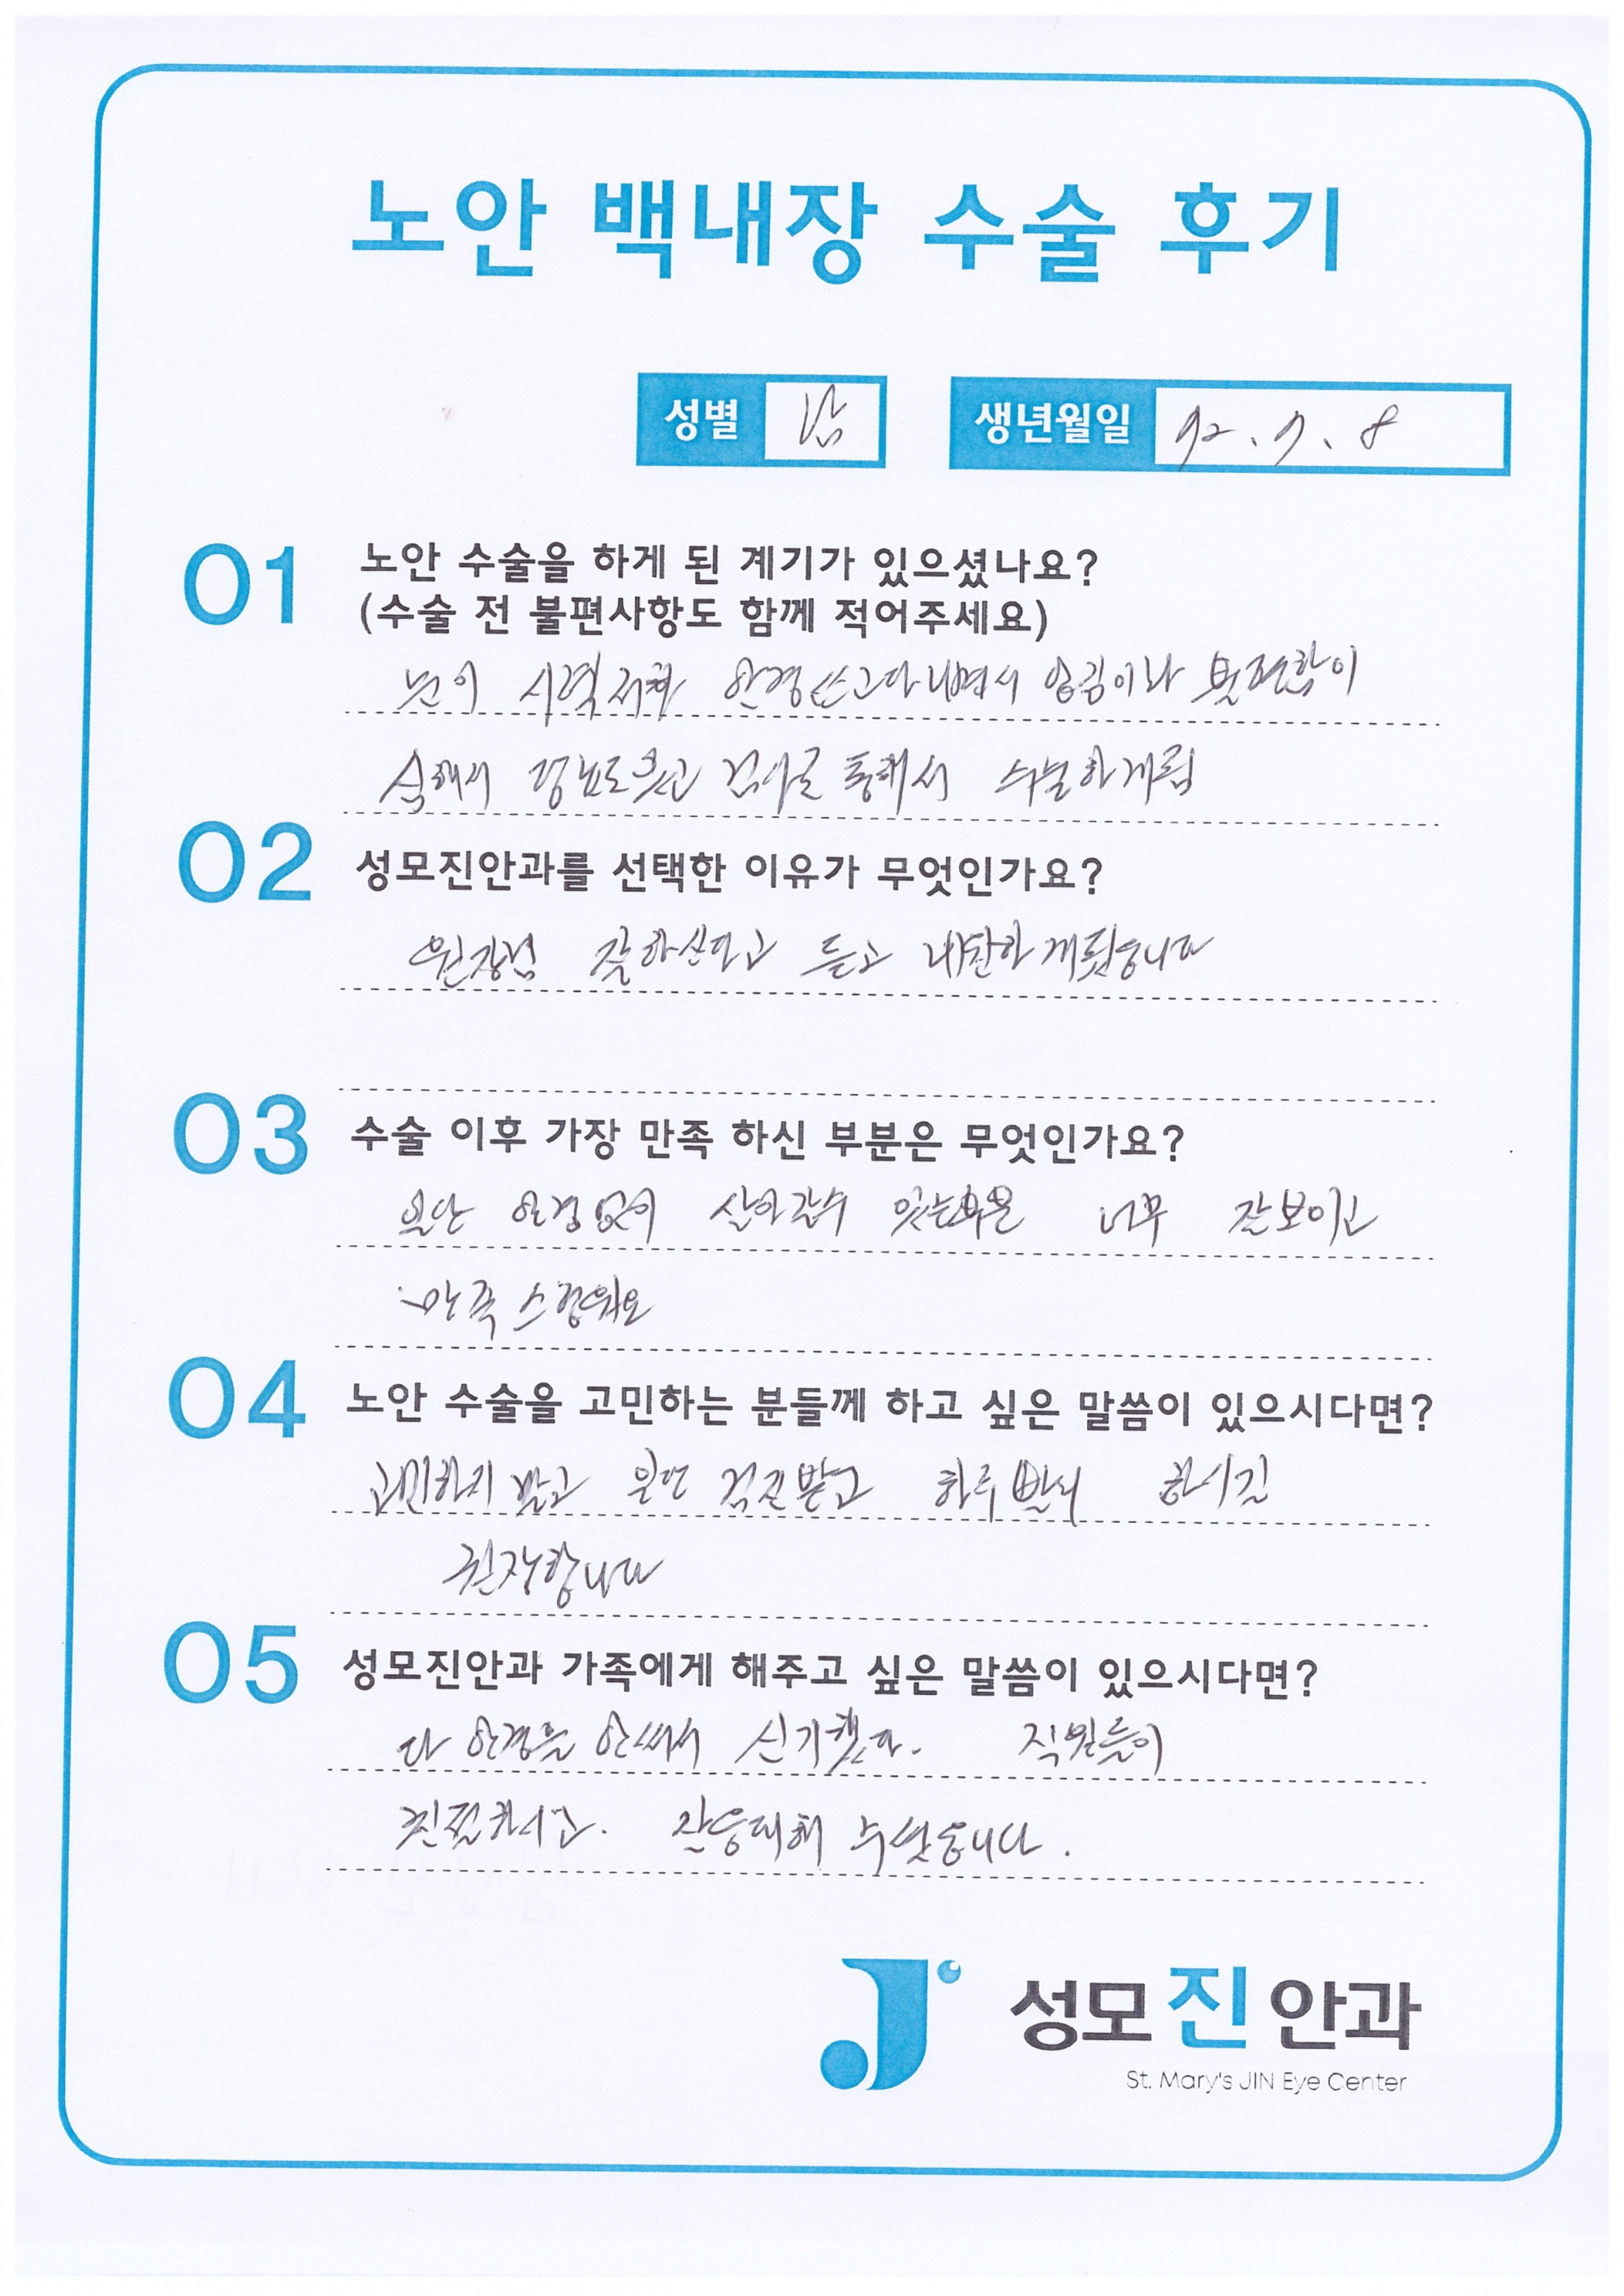 노안 백내장 수술 후기
성별 남 생년월일 92. 7. 8
01 노안 수술을 하게 된 계기가 있으셨나요?
(수술 전 불편사항도 함께 적어주세요)
눈이 시력저하 안경쓰고다니면서 엉김이라 불편함이
심해서 정보도 듣고 검사를 통해서 수술하게됨
02 성모진안과를 선택한 이유가 무엇인가요?
원장님 잘하신다고 듣고 내안하게됬습니다
03 수술 이후 가장 만족 하신 부분은 무엇인가요?
일단 안경없이 살아갈수 있는 너무 잘보이고
만족 스러워요
04 노안 수술을 고민하는 분들께 하고 싶은 말씀이 있으시다면?
고민하지 말고 일단 검진받고 하루빨리 하시길
권장합니다
05 성모진안과 가족에게 해주고 싶은 말씀이 있으시다면?
다 안경을 안써서 신기했다. 직원들이
친절하시고. 잘응대해 주셨습니다.
성모진안과
St. Mary's JIN Eye Center